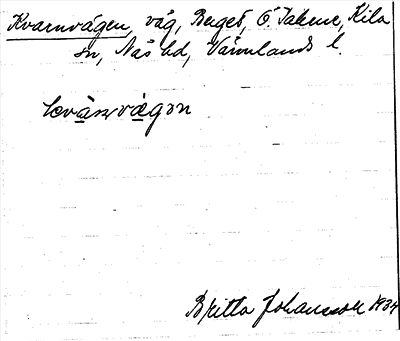 Kvarnvägen, väg, Berget, Ö Takene, Kila
sn, Näs hd, Värmlands l.
kvànvägən
Britta Johansson 1934